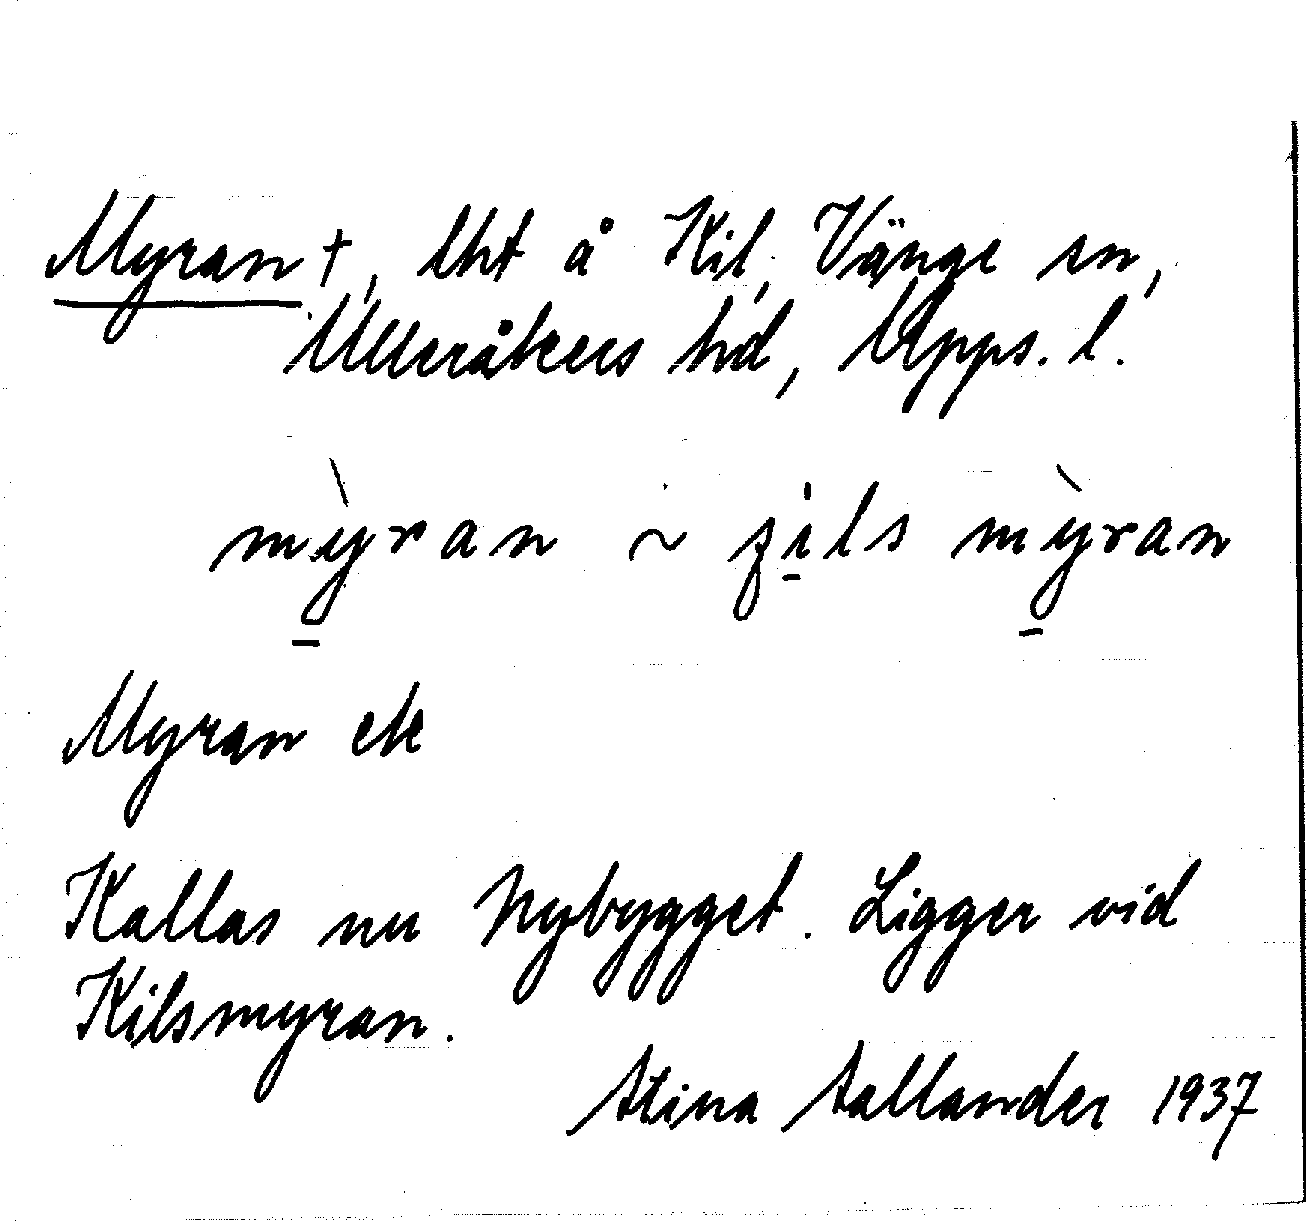 Myran †, lht å Kil, Vänge sn,
Ulleråkers hd, Upps. l.
mỳran ~ ʒils mỳran
Myran ek
Kallas nu Nybygget. Ligger vid
Kilsmyran.
Stina Sallander 1937